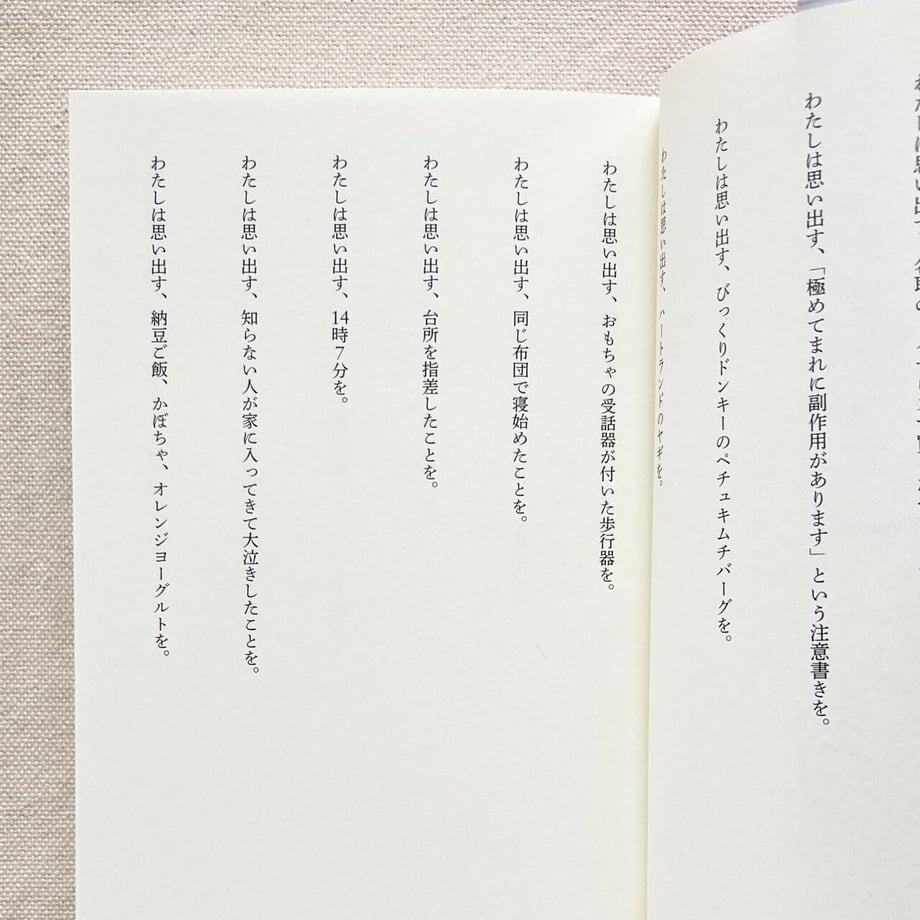 わたしは思い出す、
わたしは思い出す、「極めてまれに副作用があります」という注意書きを。
わたしは思い出す、びっくりドンキーのペチュキムチバーグを。
わたしは思い出す、ハートランドのヤギを。
わたしは思い出す、おもちゃの受話器が付いた歩行器を。
わたしは思い出す、同じ布団で寝始めたことを。
わたしは思い出す、台所を指差したことを。
わたしは思い出す、14時7分を。
わたしは思い出す、知らない人が家に入ってきて大泣きしたことを。
わたしは思い出す、納豆ご飯、かぼちゃ、オレンジヨーグルトを。